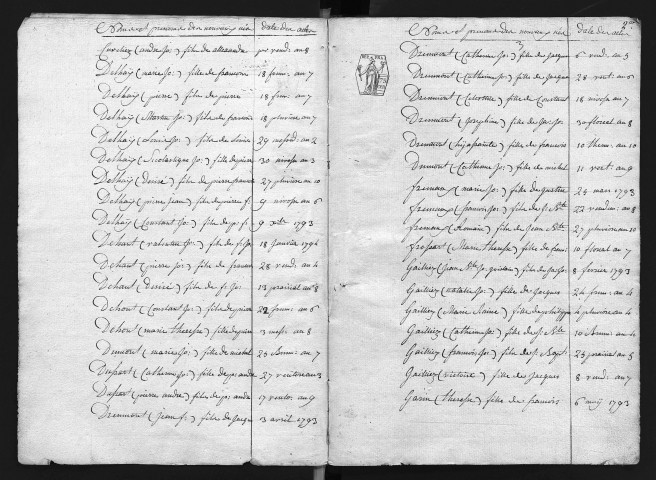 Noms et prenoms des nouveaux nés date des actes
(andre jh) fils de alexandre per vend. an 8
Delhaÿ (marie jh) fille de francois 18 frim. an 7
Delhaÿ (pierre) fils de pierre 18 frim. an 7
Delhaÿ (Martin jh) fils de francois 18 pluviose an 7
Delhaÿ (Louis jh) fils de Louis 29 messid. an 2
Delhaÿ (Scolastique jh) fille de pierre 30 nivose an 3
Delhaÿ (desiré) fils de pierre francois 27 pluviose an 10
Delhaÿ (pierre Jean) fils de pierre f. 9 nivose an 6
Delhaÿ (Constant jh) fils de p. f. 9 1793
Dehaut (valentin jh) fils de f. jh 18 Janvier 1794
Dehaut (pierre jh) fils de francois 28 vend. an 4
Dehaut (desiré) fils de f. jh 13 prairial an 8
Dehont (Constant jh) fils de pierre 22 frim. an 6
Dehont (marie therese) fille de pierre 3 messr. an 8
Dumont (marie jh) fille de michel 25 Brum. an 7
Dupont (Catherine jh) fille de p. andre 27 ventose an 3
Dupont (pierre andre) fils de p. andre 17 vento. an 9
Drumont (jean f.) fils de Jacques 13 avril 1793
Noms et prenoms des nouveaux nés date des actes
Drumont (Catherine jh) fille de Jacques 6 vend. an 5
Drumont (Catherine jh) fille de Jacques 28 vent. an 6
Drumont (Celestine) fille de Constant 18 nivose an 7
Drumont (Josephine) fille de Jac. Jos. 30 floreal an 8
Drumont () fille de francois 10 therm. an 10
Dumont (Catherine jh) fille de michel 11 vent. an 9
fremaux (marie jh) fille de 25 mars 1793
fremaux (francois jh) fils de j. Bte 22 vendem. an 8
fremaux (Romain) fils de Jean Bte 27 pluviose an 10
frossart (Marie Therese) fille de franc. 10 floreal an 7
Gailliez (Jean Bte jh) fils de Jac. Jos. 8 fevrier 1793
Gailliez (natalie jh) fille de Jacques 24 frim. an 4
Gailliez (Marie Anne) fille de philippe 4 pluviose an 4
Gailliez (Catherine jh) fille de j. Bte 10 Brum. an 4
Gailliez (francois jh) fils de j. Bapt. 25 prairial an 5
Gailliez (victoire) fille de Jacques 8 vend. an 7
Garin (therese) fille de francois 6 maÿ 1793